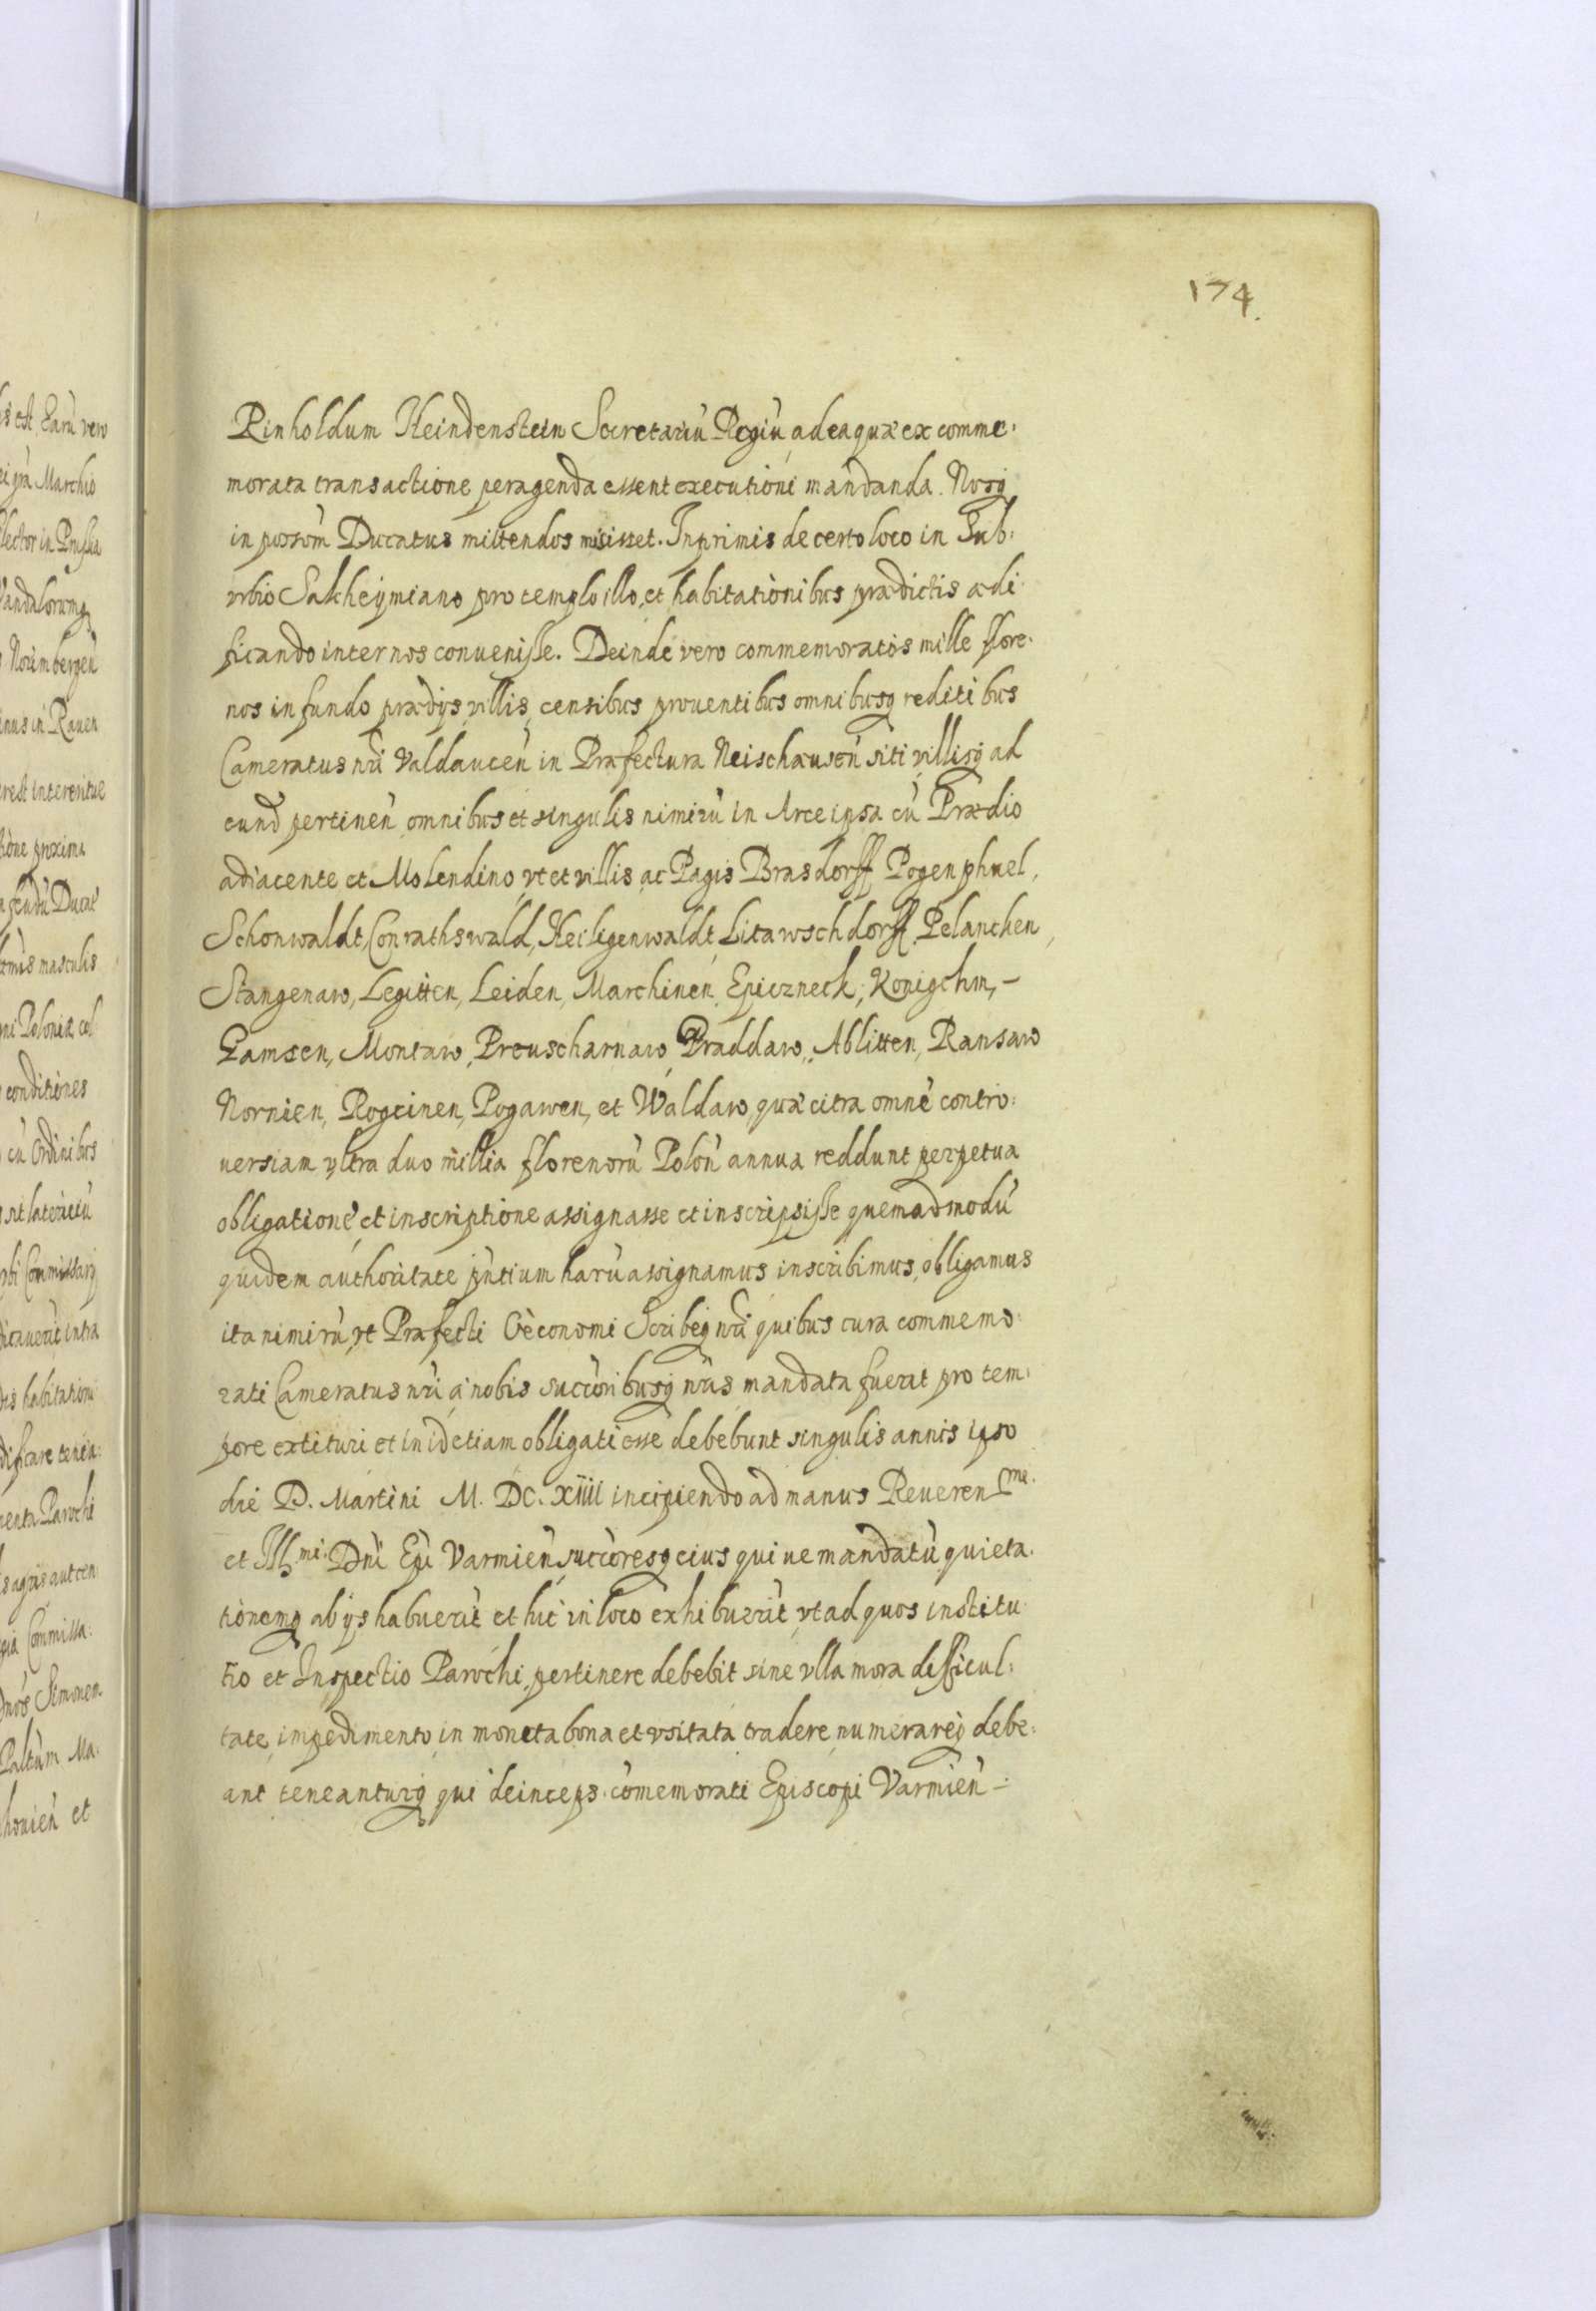 174.
Rinholdum Heindenstein Secretariū Regiū ad ea quæ ex comme:
morata transactione peragenda essent executioni mandanda. Nosq
in possom̄ Ducatus mittendos misisset. Inprimis de certo loco in Sub:
urbio Sakheÿmiano pro templo illo, et habitationibus prædictis ædi
ficando inter nos convenisse. Deinde vero commemoratos mille flore:
nos in fundo prædÿs, villis, censibus proventibus omnibusq reditibus
Cameratus nr̄i Valdaucen̄ in Præfectura Neischausen̄ siti, villisq ad
eund pertinen̄ omnibus et singulis nimirū in Arce ipsa cū Prædio
adiacente et Molendino, vt et villis ac Pagis Brasdorff, Pogenphuel,
Schonwaldt, Conrathswald, Heiligenwaldt, Litawschdorff, Pelanchen,
Stangenaw, Legitten, Leiden, Marchinen, Epiczneck, Konigchm, –
Gamsen, Montaw, Preuscharnaw, Praddaw, Ablitten, Ransaw
Nornien, Rogeinen, Pogawen, et Waldaw, quæ citra omnē contro:
uersiam vltra duo millia florenorū Polon̄ annua reddunt perpetua
obligatione, et inscriptione assignasse et inscripsisse quemadmodū
quidem authoritate pn̄tium harū assignamus, inscribimus, obligamus
ita nimirū, vt Præfecti Oeconomi Scribeq nr̄i quibus cura commemo:
rati Cameratus nr̄i a nobis succoribusq nr̄is mandata fuerit pro tem:
pore extituri et in id etiam obligati esse debebunt singulis annis ipso
die D. Martini M. DC. XIIII incipiendo ad manus Reuerenme.
et Illmi. Dn̄i Ep̄i Varmien̄ succoresq eius qui ve mandatū, quieta.
tionemq ab ÿs habuerit et hic in loco exhibuerit, vt ad quos institu
tio et Inspectio Parochi, pertinere debebit sine vlla mora difficul:
tate, impedimento, in moneta bona et vsitata tradere, numerareq debe:
ant teneanturq qui deinceps comemorati Episcopi Varmien̄ –